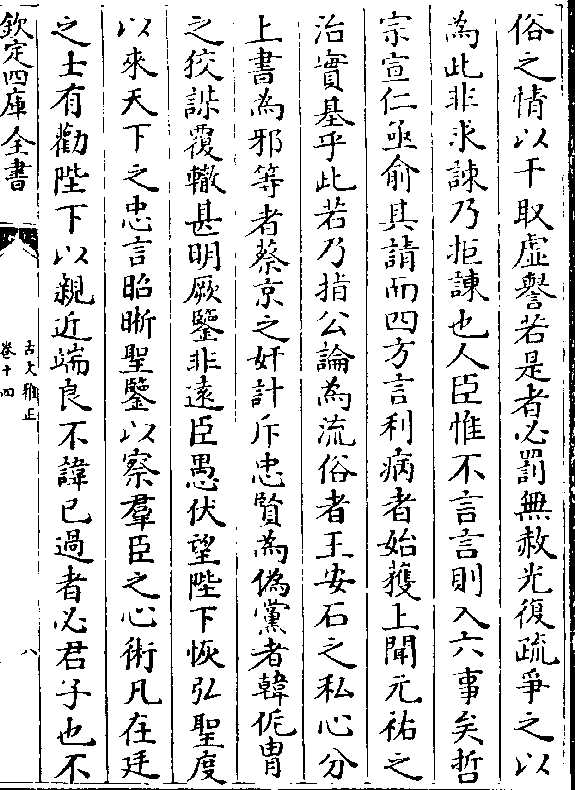 俗之情以干取虛譽若是者必罰無赦光復疏爭之以
為此非求諫乃拒諫也人臣惟不言言則入六事矣哲
宗宣仁亟俞其請而四方言利病者始獲上聞元祐之
治實基乎此若乃指公論為流俗者王安石之私心分
上書為邪等者蔡京之奸計斥忠賢為偽黨者韓侂胄
之狡謀覆轍甚明厥鑒非遠臣愚伏望陛下恢弘聖度
以來天下之忠言昭晰聖鑒以察羣臣之心術凡在廷
之士有勸陛下以親近端良不諱已過者必君子也不
欽定四庫全書
古文雅正
卷十四
八